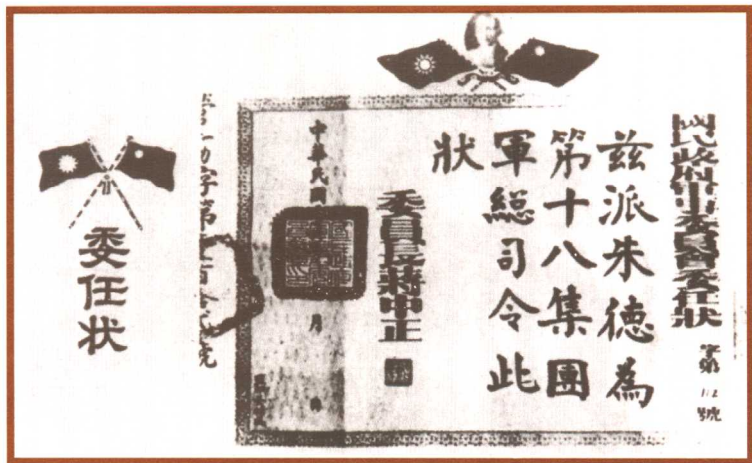 國民政府軍事委員會委任狀
字第112號
茲派朱德為
第十八集團
軍總司令此
狀
委員長蔣中正
中華民國
月
委任状